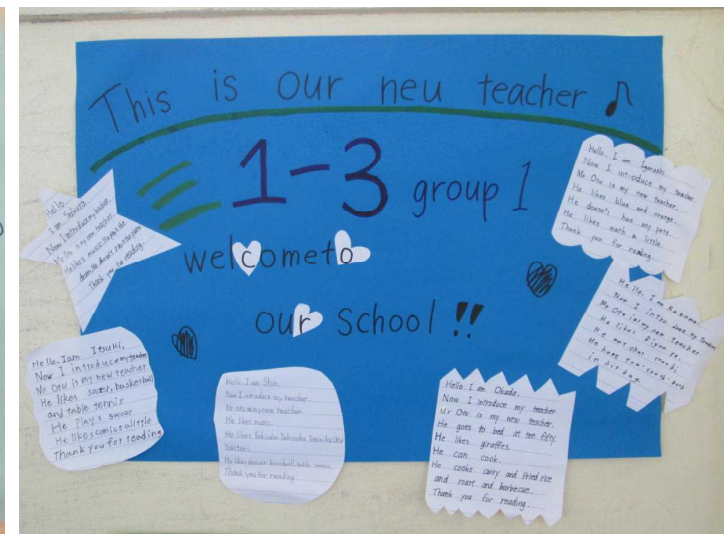 This is our neu teacher
1-3 group 1
welcome to
our School !!
Hello
I am
Now I introduce my teacher.
Mr Otu is my new teacher.
He likes music. He
Thank you for reading.
Hello. I am Igarashi
Now I introduce my teacher.
Mr Otu is my new teacher.
He likes blue and orange.
He doesn't has my pets.
He likes math a little.
Thank you for reading.
Hello, I am
Now I my
Mr Otu is my new teacher.
He likes
He
He
in his bag.
Hello, I am Itsuki,
Now I introduce my teacher
Mr Otu is my new teacher
He likes soccer, basketball
and table tennis
He plays soccer
He likes comics a little
Thank you for reading
Hello. I am Shin.
Now I introduce my teacher.
Mr Otu is my new teacher.
He likes music.
He likes
Yakitori.
He likes soccer baseball, table tennis.
Thank you for reading.
Hello. I am Okada.
Now I introduce my teacher
Mr Otu is my new teacher.
He goes to bed at ten fifty.
He likes giraffes.
He can cook.
He cooks carry and fried rice
and roast and barbecue.
Thank you for reading.